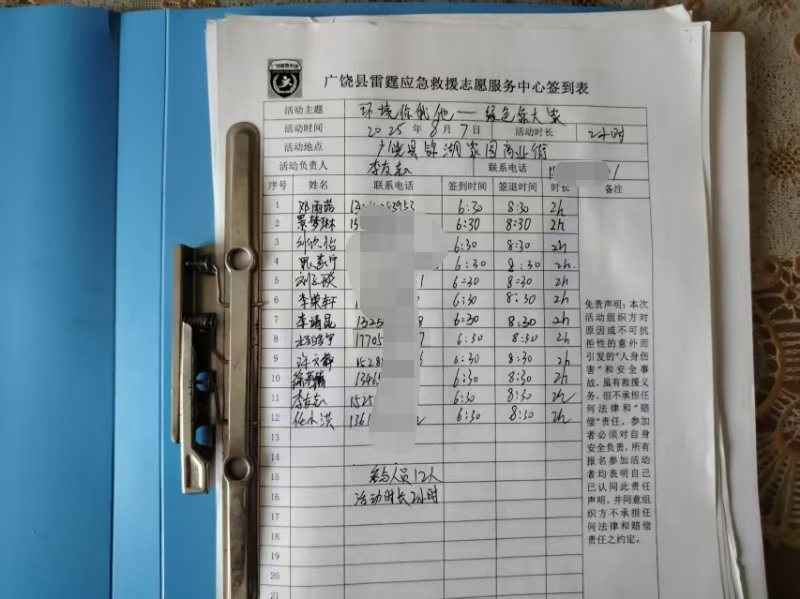 广饶县雷霆应急救援志愿服务中心签到表
活动主题 环境你我他——绿色靠大家
活动时间 2025年8月7日 活动时长 2小时
活动地点 广饶县锦湖家园商业街
活动负责人 李友志 联系电话 1
序号 姓名 联系电话 签到时间 签退时间 时长 备注
1 邓雨菡 6:30 8:30 2h
2 景梦琳 6:30 8:30 2h
3 刘欣怡 6:30 8:30 2h
4 6:30 8:30 2h.
5 1 6:30 8:30 2h
6 李荣轩 6:30 8:30 2h
7 李靖昆 1325 8 6:30 8:30 2h
8 17705 7 6:30 8:30 2h
9 1528 6:30 8:30 2h
10 1346 6:30 8:30 2h
11 李友志 1525 6:30 8:30 2h
12 任永洪 1361 6:30 8:30 2h
13
14
15 参与人员12人
16 活动时长2小时
17
18
19
20
21
免责声明：本次
活动组织方对
原因或不可抗
拒性的意外而
引发的“人身伤
害”和安全事
故，虽有救援义
务，但不承担任
何法律和“赔
偿”责任。参加
者必须对自身
安全负责，所有
报名参加活动
者均表明自己
已认同此责任
声明，并同意组
织方不承担任
何法律和赔偿
责任之约定。